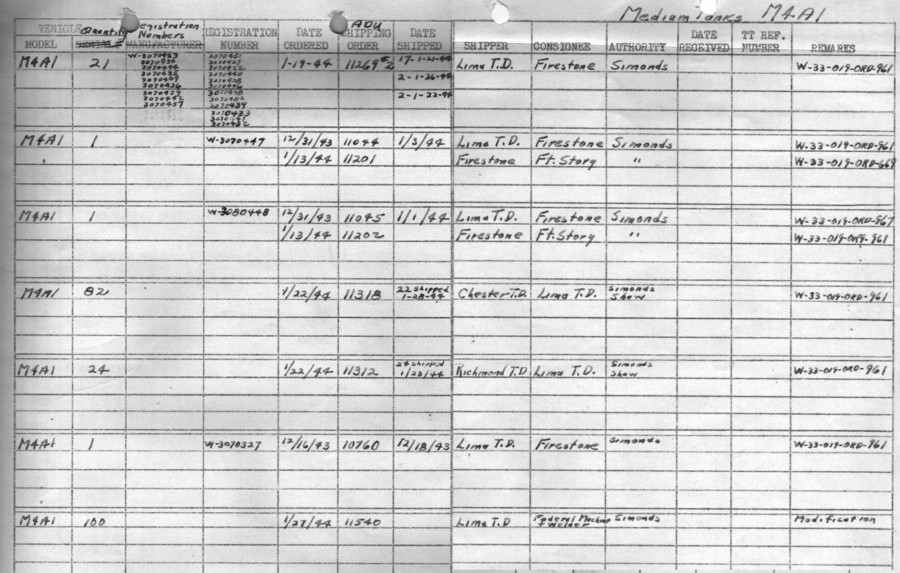 Medium Tanks M4A1
VEHICLE Quantity Registration Numbers REGISTRATION DATE AOU SHIPPING DATE DATE TT REF.
MODEL MANUFACTURER NUMBER ORDERED ORDER SHIPPED SHIPPER CONSIGNEE AUTHORITY RECEIVED NUMBER REMARKS
M4A1 21 1-19-44 11269 17-1-21-44 Lima T.D. Firestone Simonds W-33-019-ORD-961
2-1-26-44
2-1-22-44
M4A1 1 W-3070447 12/31/43 11044 1/3/44 Lima T.D. Firestone Simonds W-33-019-ORD-961
1/13/44 11201 Firestone Ft. Story " W-33-019-ORD-669
M4A1 1 W-3080448 12/31/43 11045 1/1/44 Lima T.D. Firestone Simonds W-33-019-ORD-967
1/13/44 11202 Firestone Ft. Story " W-33-019-ORD-961
M4A1 82 1/22/44 11318 22 Shipped 1-28-44 Chester T.D. Lima T.D. Simonds Shaw W-33-019-ORD-961
M4A1 24 1/22/44 11312 24 Shipped 1/23/44 Richmond T.D. Lima T.D. Simonds Shaw W-33-019-ORD-961
M4A1 1 W-3070327 12/16/43 10760 12/18/43 Lima T.D. Firestone Simonds W-33-019-ORD-961
M4A1 100 1/27/44 11540 Lima T.D Federal Machine & Welder Simonds Modification